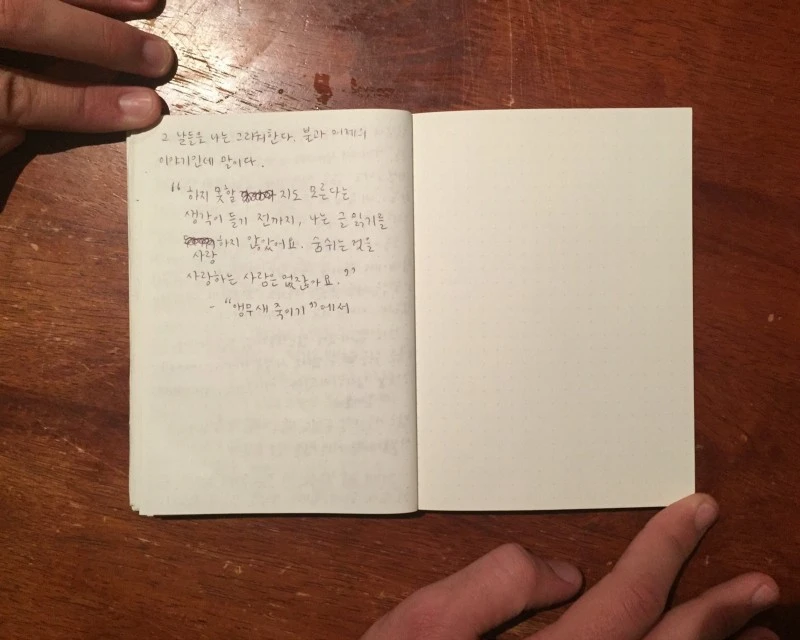 그 날들을 나는 그리워한다. 불과 어제의
이야기인데 말이다.
“하지 못할 지도 모른다는
생각이 들기 전까지, 나는 글 읽기를
하지 않았어요. 숨쉬는 것을
사랑
사랑하는 사람은 없잖아요.”
- “앵무새 죽이기”에서